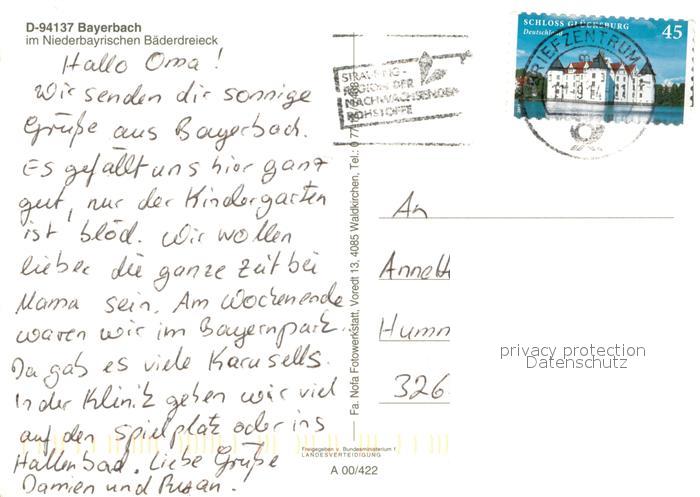 D-94137 Bayerbach
im Niederbayrischen Bäderdreieck
Hallo Oma!
Wir senden dir sonnige
Grüße aus Bayerbach.
Es gefällt uns hier ganz
gut, nur der Kindergarten
ist blöd. Wir wollen
lieber die ganze Zeit bei
Mama sein. Am Wochenende
waren wir im Bayernpark.
Da gab es viele Karusells.
In der Klinik gehen wir viel
auf den Spielplatz oder ins
Hallenbad. Liebe Grüße
Damien und
Fa. Nofa Fotowerkstatt, Voredt 13, 4085 Waldkirchen, Tel.: 0
REGION DER
NACHWACHSENDEN
ROHSTOFFE
SCHLOSS GLÜCKSBURG
Deutschland
45
BRIEFZENTRUM
An
Annett
Humm
326
privacy protection
Datenschutz
Freigegeben v. Bundesministerium f.
LANDESVERTEIDIGUNG
A 00/422